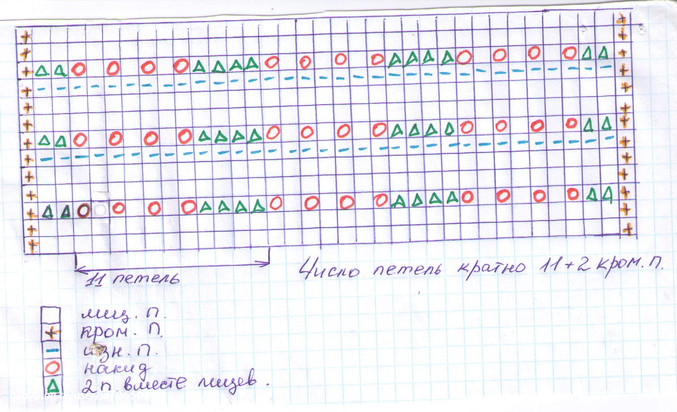 11 петель
Число петель кратно 11+2 кром. п.
лиц. п.
кром. п.
изн. п.
накид
2 п. вместе лицев.